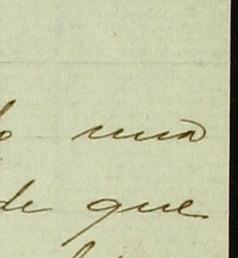 una
de que